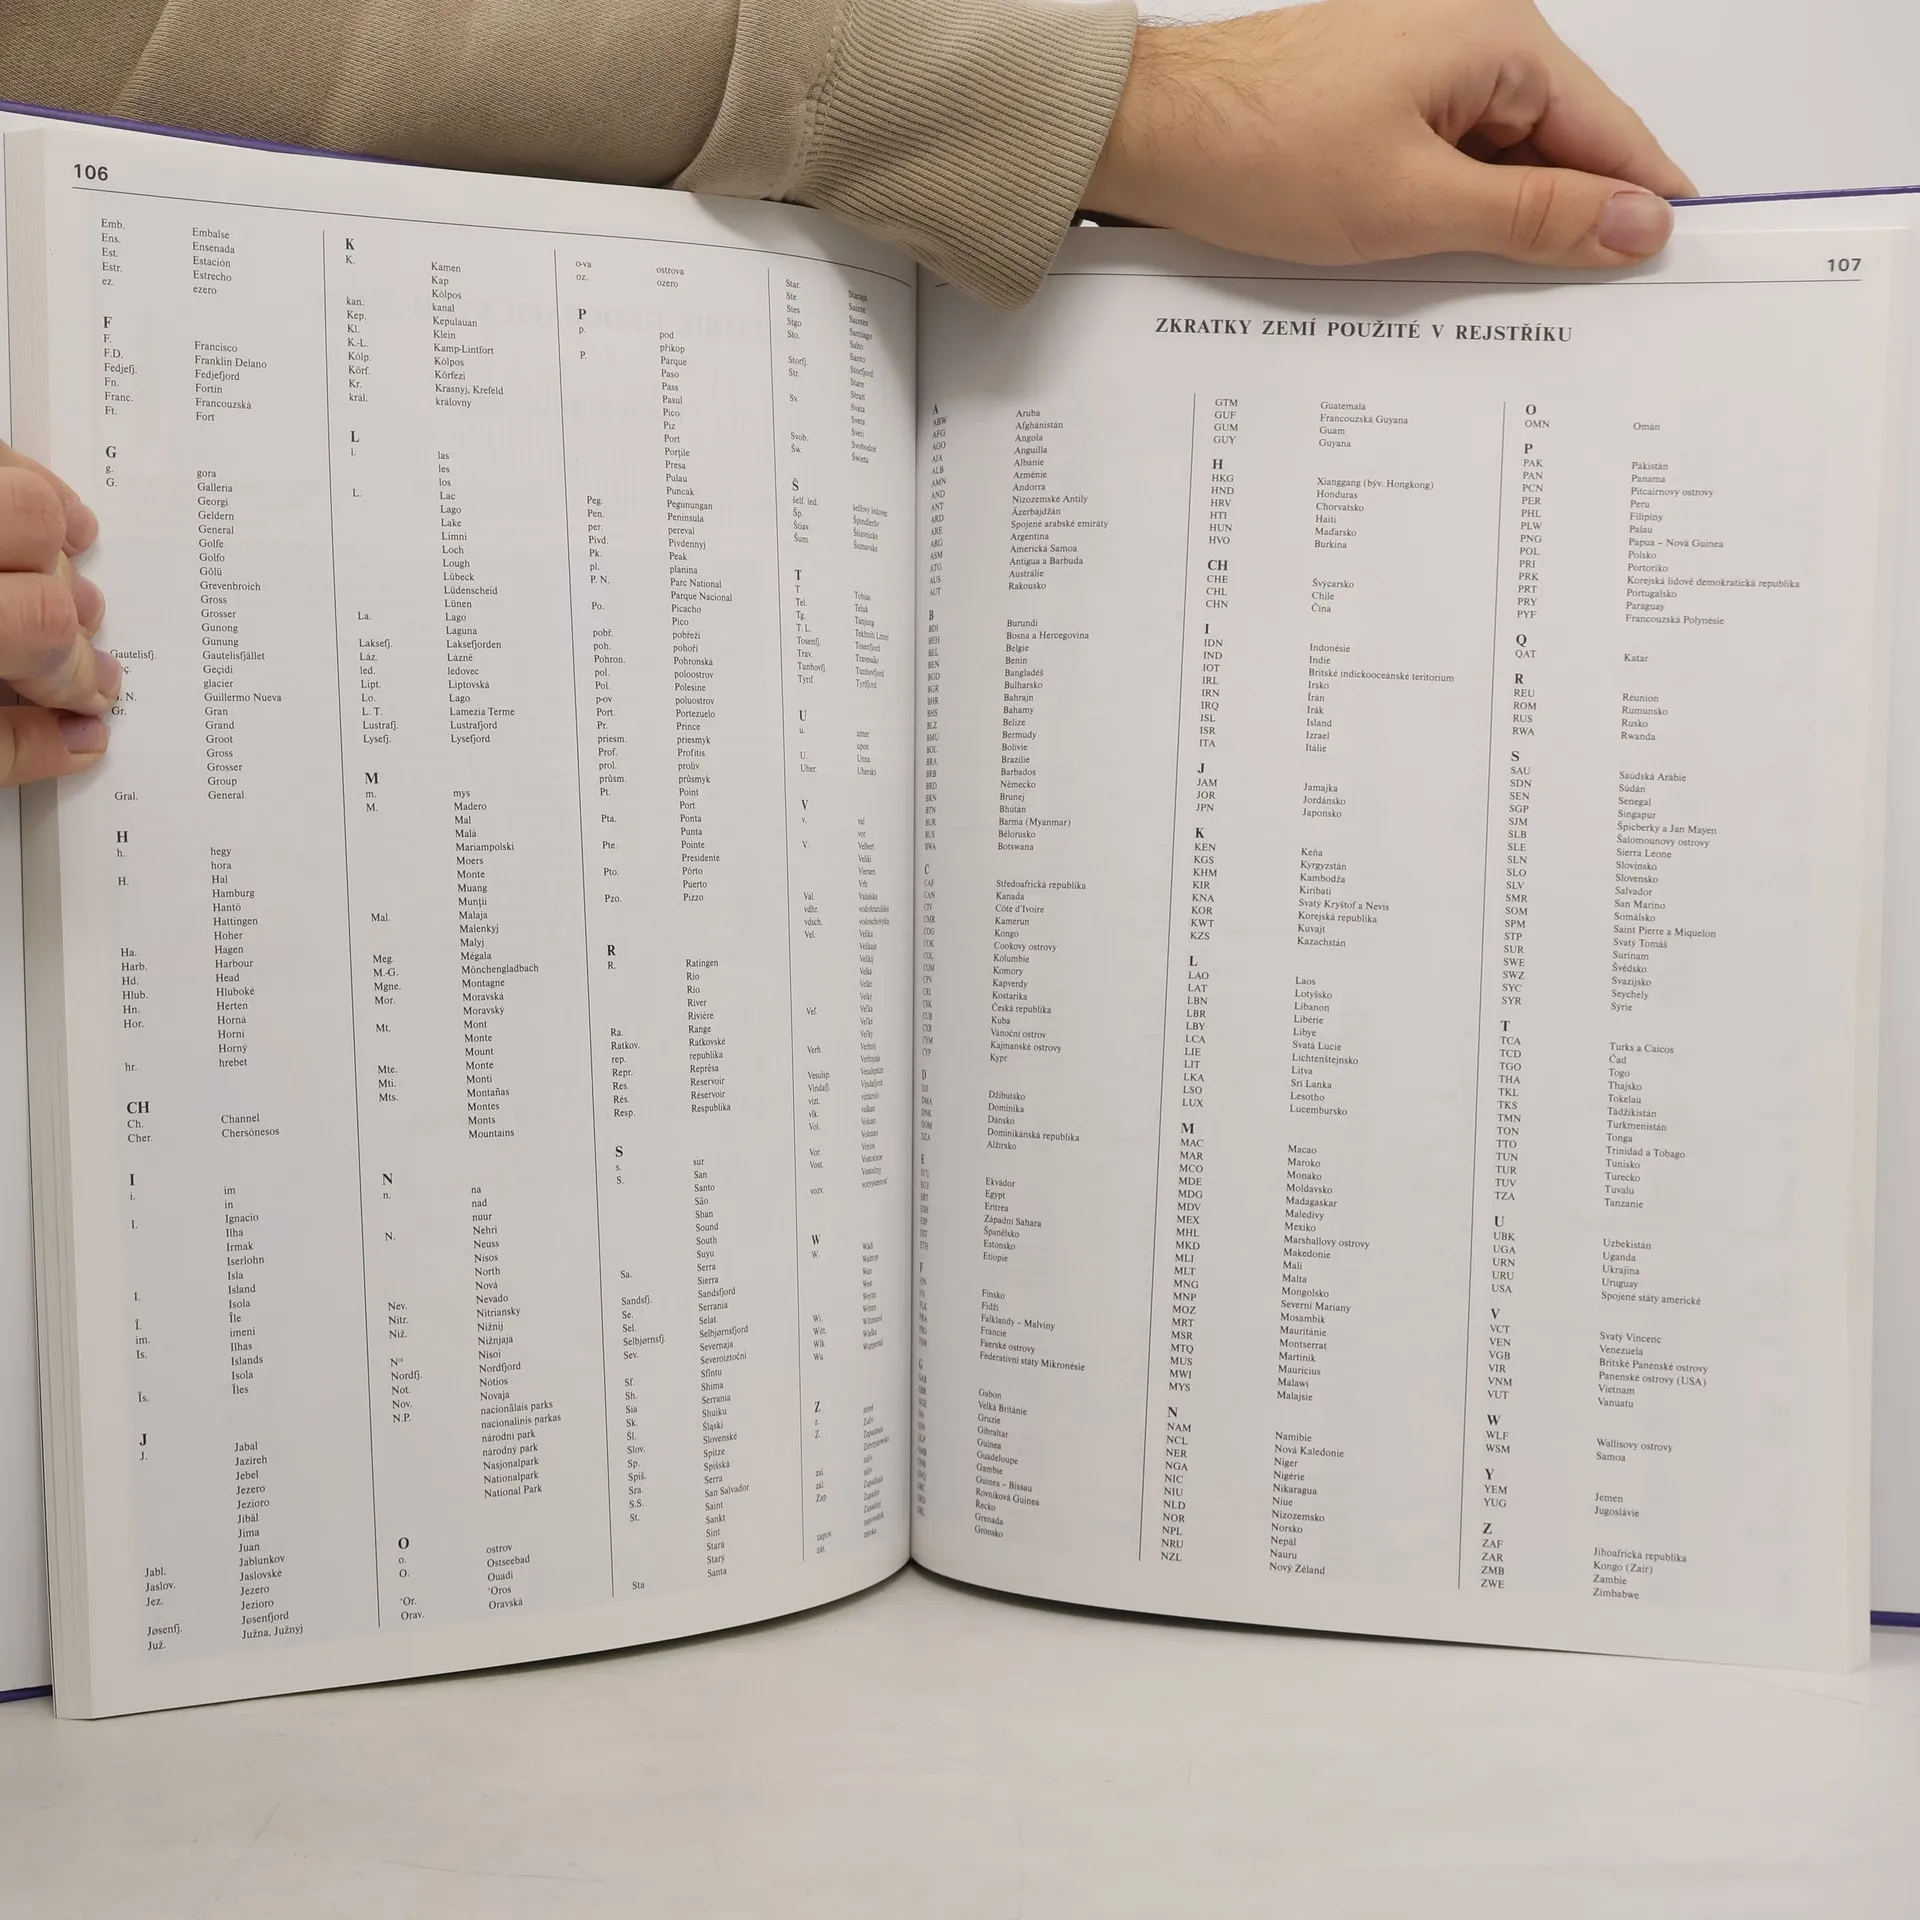 106
Emb. Embalse
Ens. Ensenada
Est. Estación
Estr. Estrecho
ez. ezero
F
F. Francisco
F.D. Franklin Delano
Fedjefj. Fedjefjord
Fn. Fortín
Franc. Francouzská
Ft. Fort
G
g. gora
G. Galleria
Georgi
Geldern
General
Golfe
Golfo
Gölü
Grevenbroich
Gross
Grosser
Gunong
Gunung
Gautelisfj. Gautelisfjället
Geçidi
glacier
Guillermo Nueva
Gr. Gran
Grand
Groot
Gross
Grosser
Group
Gral. General
H
h. hegy
hora
H. Hal
Hamburg
Hantō
Hattingen
Hoher
Ha. Hagen
Harb. Harbour
Hd. Head
Hlub. Hluboké
Hn. Herten
Hor. Horná
Horní
Horný
hr. hrebet
CH
Ch. Channel
Cher. Chersónesos
I
i. im
in
I. Ignacio
Ilha
Irmak
Iserlohn
Isla
Island
I. Isola
Î. Île
im. imeni
Is. Ilhas
Islands
Isola
Îs. Îles
J
J. Jabal
Jazireh
Jebel
Jezero
Jezioro
Jibāl
Jima
Juan
Jabl. Jablunkov
Jaslov. Jaslovské
Jez. Jezero
Jezioro
Jøsenfj. Jøsenfjord
Juž. Južna, Južnyj
K
K. Kamen
Kap
Kólpos
kan. kanal
Kep. Kepulauan
Kl. Klein
K.-L. Kamp-Lintfort
Kólp. Kólpos
Körf. Körfezi
Kr. Krasnyj, Krefeld
král. královny
L
l. las
les
los
L. Lac
Lago
Lake
Limni
Loch
Lough
Lübeck
Lüdenscheid
Lünen
La. Lago
Laguna
Laksefj. Laksefjorden
Láz. Lázně
led. ledovec
Lipt. Liptovská
Lo. Lago
L. T. Lamezia Terme
Lustrafj. Lustrafjord
Lysefj. Lysefjord
M
m. mys
M. Madero
Mal
Malá
Mariampolski
Moers
Monte
Muang
Munţii
Mal. Malaja
Malenkyj
Malyj
Meg. Mégala
M.-G. Mönchengladbach
Mgne. Montagne
Mor. Moravská
Moravský
Mt. Mont
Monte
Mount
Mte. Monte
Mti. Monti
Mts. Montañas
Montes
Monts
Mountains
N
n. na
nad
nuur
N. Nehri
Neuss
Nisos
North
Nová
Nev. Nevado
Nitr. Nitriansky
Niž. Nižnij
Nižnjaja
Nisoi
Nordfj. Nordfjord
Not. Nótios
Nov. Novaja
N.P. nacionālais parks
nacionalinis parkas
národní park
národný park
Nasjonalpark
Nationalpark
National Park
O
o. ostrov
O. Ostseebad
Ouadi
'Or. 'Oros
Orav. Oravská
o-va ostrova
oz. ozero
P
p. pod
příkop
P. Parque
Paso
Pass
Pasul
Pico
Piz
Port
Porţile
Presa
Pulau
Puncak
Peg. Pegunungan
Pen. Peninsula
per. pereval
Pivd. Pivdennyj
Pk. Peak
pl. planina
P. N. Parc National
Parque Nacional
Po. Picacho
Pico
pobř. pobřeží
poh. pohoří
Pohron. Pohronská
pol. poloostrov
Pol. Polesine
p-ov poluostrov
Port. Portezuelo
Pr. Prince
priesm. priesmyk
Prof. Profitis
prol. proliv
průsm. průsmyk
Pt. Point
Port
Pta. Ponta
Punta
Pte. Pointe
Presidente
Pto. Pôrto
Puerto
Pzo. Pizzo
R
R. Ratingen
Rio
Río
River
Rivière
Ra. Range
Ratkov. Ratkovské
rep. republika
Repr. Reprêsa
Res. Reservoir
Rés. Réservoir
Resp. Respublika
S
s. sur
S. San
Santo
São
Shan
Sound
South
Suyu
Sa. Serra
Sierra
Sandsfj. Sandsfjord
Se. Serrania
Sel. Selat
Selbjørnsfj. Selbjørnsfjord
Sev. Severnaja
Severoiztočni
Sf. Sfîntu
Sh. Shima
Sia Serrania
Sk. Shuiku
Śl. Śląski
Slov. Slovenské
Sp. Spitze
Spiš. Spišská
Sra. Serra
S.S. San Salvador
St. Saint
Sankt
Sint
Stará
Starý
Sta Santa
Star. Staraja
Ste Sainte
Stes Saintes
Stgo Santiago
Sto. Salto
Santo
Storfj. Storfjord
Str. Stare
Strait
Sv. Svatá
Sveta
Sveti
Svob. Svobodné
Św. Świeta
Š
šelf. led. šelfový ledovec
Šp. Špindlerův
Štiav. Štiavnické
Šum. Šumavské
T
T. Tobias
Tel. Teluk
Tg. Tanjung
T. L. Tekhniti Limni
Tosenfj. Tosenfjord
Trav. Travessão
Tunhovfj. Tunhovfjord
Tyrif. Tyrifjord
U
u. unter
upon
U. Unna
Uher. Uherský
V
v. val
vor
V. Velbert
Veliki
Viersen
Vrh
Val. Valašské
vdhr. vodohranilišče
vdsch. vodoschovyšče
Vel. Velika
Velikaja
Velikij
Velká
Velké
Velký
Veľ. Veľká
Veľké
Veľký
Verh. Verhnij
Verhnjaja
Vesulsp.
Vindafj. Vindafjord
vítězství
vlk. vulkan
Vol. Volcán
Volcano
Vor.
Vost. Vostočnoe
Vostočnyj
vozv.
W
W. Wādī
Waltrop
Wan
West
Weyhe
Witten
Wi. Witmund
Witt.
Wlk. Wielka
Wu. Wuppertal
Z
z. země
Z. Zaliv
zal. zaliv
zál. záliv
Zap. Zapadnaja
Zapadni
Zapadnyj
zapov. zapovědnik
zát. zátoka
107
ZKRATKY ZEMÍ POUŽITÉ V REJSTŘÍKU
A
ABW Aruba
AFG Afghánistán
AGO Angola
AIA Anguilla
ALB Albánie
AMN Arménie
AND Andorra
ANT Nizozemské Antily
Ázerbájdžán
ARE Spojené arabské emiráty
ARG Argentina
ASM Americká Samoa
ATG Antigua a Barbuda
AUS Austrálie
AUT Rakousko
B
BDI Burundi
BEH Bosna a Hercegovina
BEL Belgie
BEN Benin
BGD Bangladéš
BGR Bulharsko
BHR Bahrajn
BHS Bahamy
BLZ Belize
BMU Bermudy
BOL Bolívie
BRA Brazílie
BRB Barbados
BRD Německo
BRN Brunej
BTN Bhútán
BUR Barma (Myanmar)
BUS Bělorusko
BWA Botswana
C
CAF Středoafrická republika
CAN Kanada
CIV Côte d'Ivoire
CMR Kamerun
COG Kongo
COK Cookovy ostrovy
COL Kolumbie
COM Komory
CPV Kapverdy
CRI Kostarika
CSK Česká republika
CUB Kuba
CXR Vánoční ostrov
CYM Kajmanské ostrovy
CYP Kypr
D
DJI Džibutsko
DMA Dominika
DNK Dánsko
DOM Dominikánská republika
DZA Alžírsko
E
ECU Ekvádor
EGY Egypt
ERT Eritrea
ESH Západní Sahara
ESP Španělsko
EST Estonsko
ETH Etiopie
F
FIN Finsko
FJI Fidži
FLK Falklandy – Malvíny
FRA Francie
FRO Faerské ostrovy
FSM Federativní státy Mikronésie
G
GAB Gabon
GBR Velká Británie
Gruzie
GIB Gibraltar
GIN Guinea
GLP Guadeloupe
GMB Gambie
GNB Guinea – Bissau
GNQ Rovníková Guinea
GRC Řecko
GRD Grenada
GRL Grónsko
GTM Guatemala
GUF Francouzská Guyana
GUM Guam
GUY Guyana
H
HKG Xianggang (býv. Hongkong)
HND Honduras
HRV Chorvatsko
HTI Haiti
HUN Maďarsko
HVO Burkina
CH
CHE Švýcarsko
CHL Chile
CHN Čína
I
IDN Indonésie
IND Indie
IOT Britské indickooceánské teritorium
IRL Irsko
IRN Írán
IRQ Irák
ISL Island
ISR Izrael
ITA Itálie
J
JAM Jamajka
JOR Jordánsko
JPN Japonsko
K
KEN Keňa
KGS Kyrgyzstán
KHM Kambodža
KIR Kiribati
KNA Svatý Kryštof a Nevis
KOR Korejská republika
KWT Kuvajt
KZS Kazachstán
L
LAO Laos
LAT Lotyšsko
LBN Libanon
LBR Libérie
LBY Libye
LCA Svatá Lucie
LIE Lichtenštejnsko
LIT Litva
LKA Srí Lanka
LSO Lesotho
LUX Lucembursko
M
MAC Macao
MAR Maroko
MCO Monako
MDE Moldavsko
MDG Madagaskar
MDV Maledivy
MEX Mexiko
MHL Marshallovy ostrovy
MKD Makedonie
MLI Mali
MLT Malta
MNG Mongolsko
MNP Severní Mariany
MOZ Mosambik
MRT Mauritánie
MSR Montserrat
MTQ Martinik
MUS Mauricius
MWI Malawi
MYS Malajsie
N
NAM Namibie
NCL Nová Kaledonie
NER Niger
NGA Nigérie
NIC Nikaragua
NIU Niue
NLD Nizozemsko
NOR Norsko
NPL Nepál
NRU Nauru
NZL Nový Zéland
O
OMN Omán
P
PAK Pákistán
PAN Panama
PCN Pitcairnovy ostrovy
PER Peru
PHL Filipíny
PLW Palau
PNG Papua – Nová Guinea
POL Polsko
PRI Portoriko
PRK Korejská lidově demokratická republika
PRT Portugalsko
PRY Paraguay
PYF Francouzská Polynésie
Q
QAT Katar
R
REU Réunion
ROM Rumunsko
RUS Rusko
RWA Rwanda
S
SAU Saúdská Arábie
SDN Súdán
SEN Senegal
SGP Singapur
SJM Špicberky a Jan Mayen
SLB Šalomounovy ostrovy
SLE Sierra Leone
SLN Slovinsko
SLO Slovensko
SLV Salvador
SMR San Marino
SOM Somálsko
SPM Saint Pierre a Miquelon
STP Svatý Tomáš
SUR Surinam
SWE Švédsko
SWZ Svazijsko
SYC Seychely
SYR Sýrie
T
TCA Turks a Caicos
TCD Čad
TGO Togo
THA Thajsko
TKL Tokelau
TKS Tádžikistán
TMN Turkmenistán
TON Tonga
TTO Trinidad a Tobago
TUN Tunisko
TUR Turecko
TUV Tuvalu
TZA Tanzanie
U
UBK Uzbekistán
UGA Uganda
URN Ukrajina
URU Uruguay
USA Spojené státy americké
V
VCT Svatý Vincenc
VEN Venezuela
VGB Britské Panenské ostrovy
VIR Panenské ostrovy (USA)
VNM Vietnam
VUT Vanuatu
W
WLF Wallisovy ostrovy
WSM Samoa
Y
YEM Jemen
YUG Jugoslávie
Z
ZAF Jihoafrická republika
ZAR Kongo (Zair)
ZMB Zambie
ZWE Zimbabwe